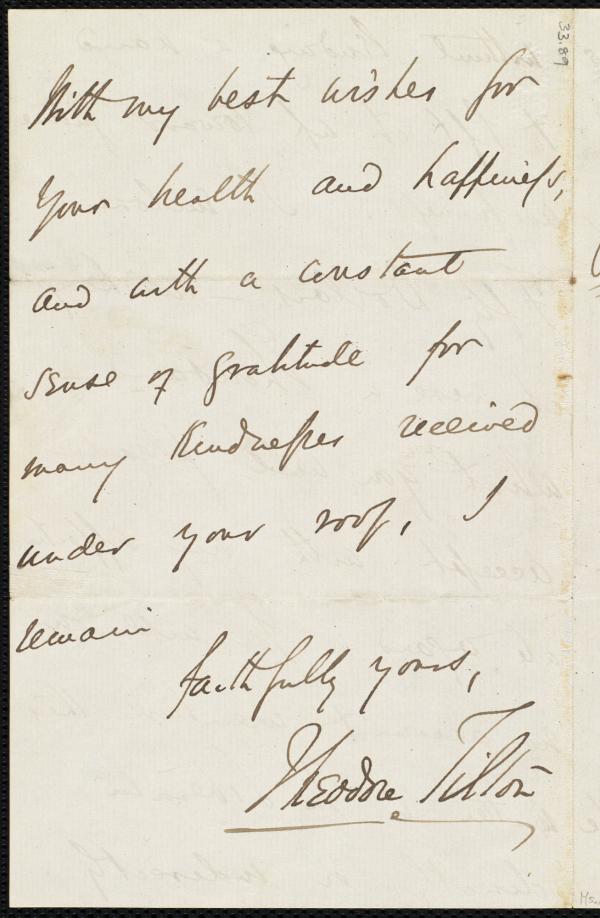 33.89
With my best wishes for
your health and happiness,
and with a constant
sense of gratitude for
many kindnesses received
under your roof, I
remain
faithfully yours,
Theodore Tilton
Ms.